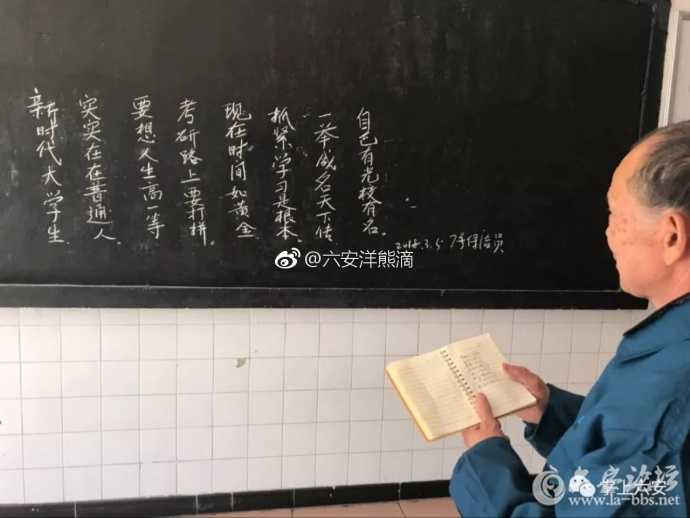 新时代大学生
实实在在普通人.
要想人生高一等
考研路上要打拼.
现在时间如黄金
抓紧学习是根本.
一举成名天下传
自己有光校有名.
2018.3.5 保洁员
@六安洋熊滴
六安论坛
掌上六安
www.la-bbs.net